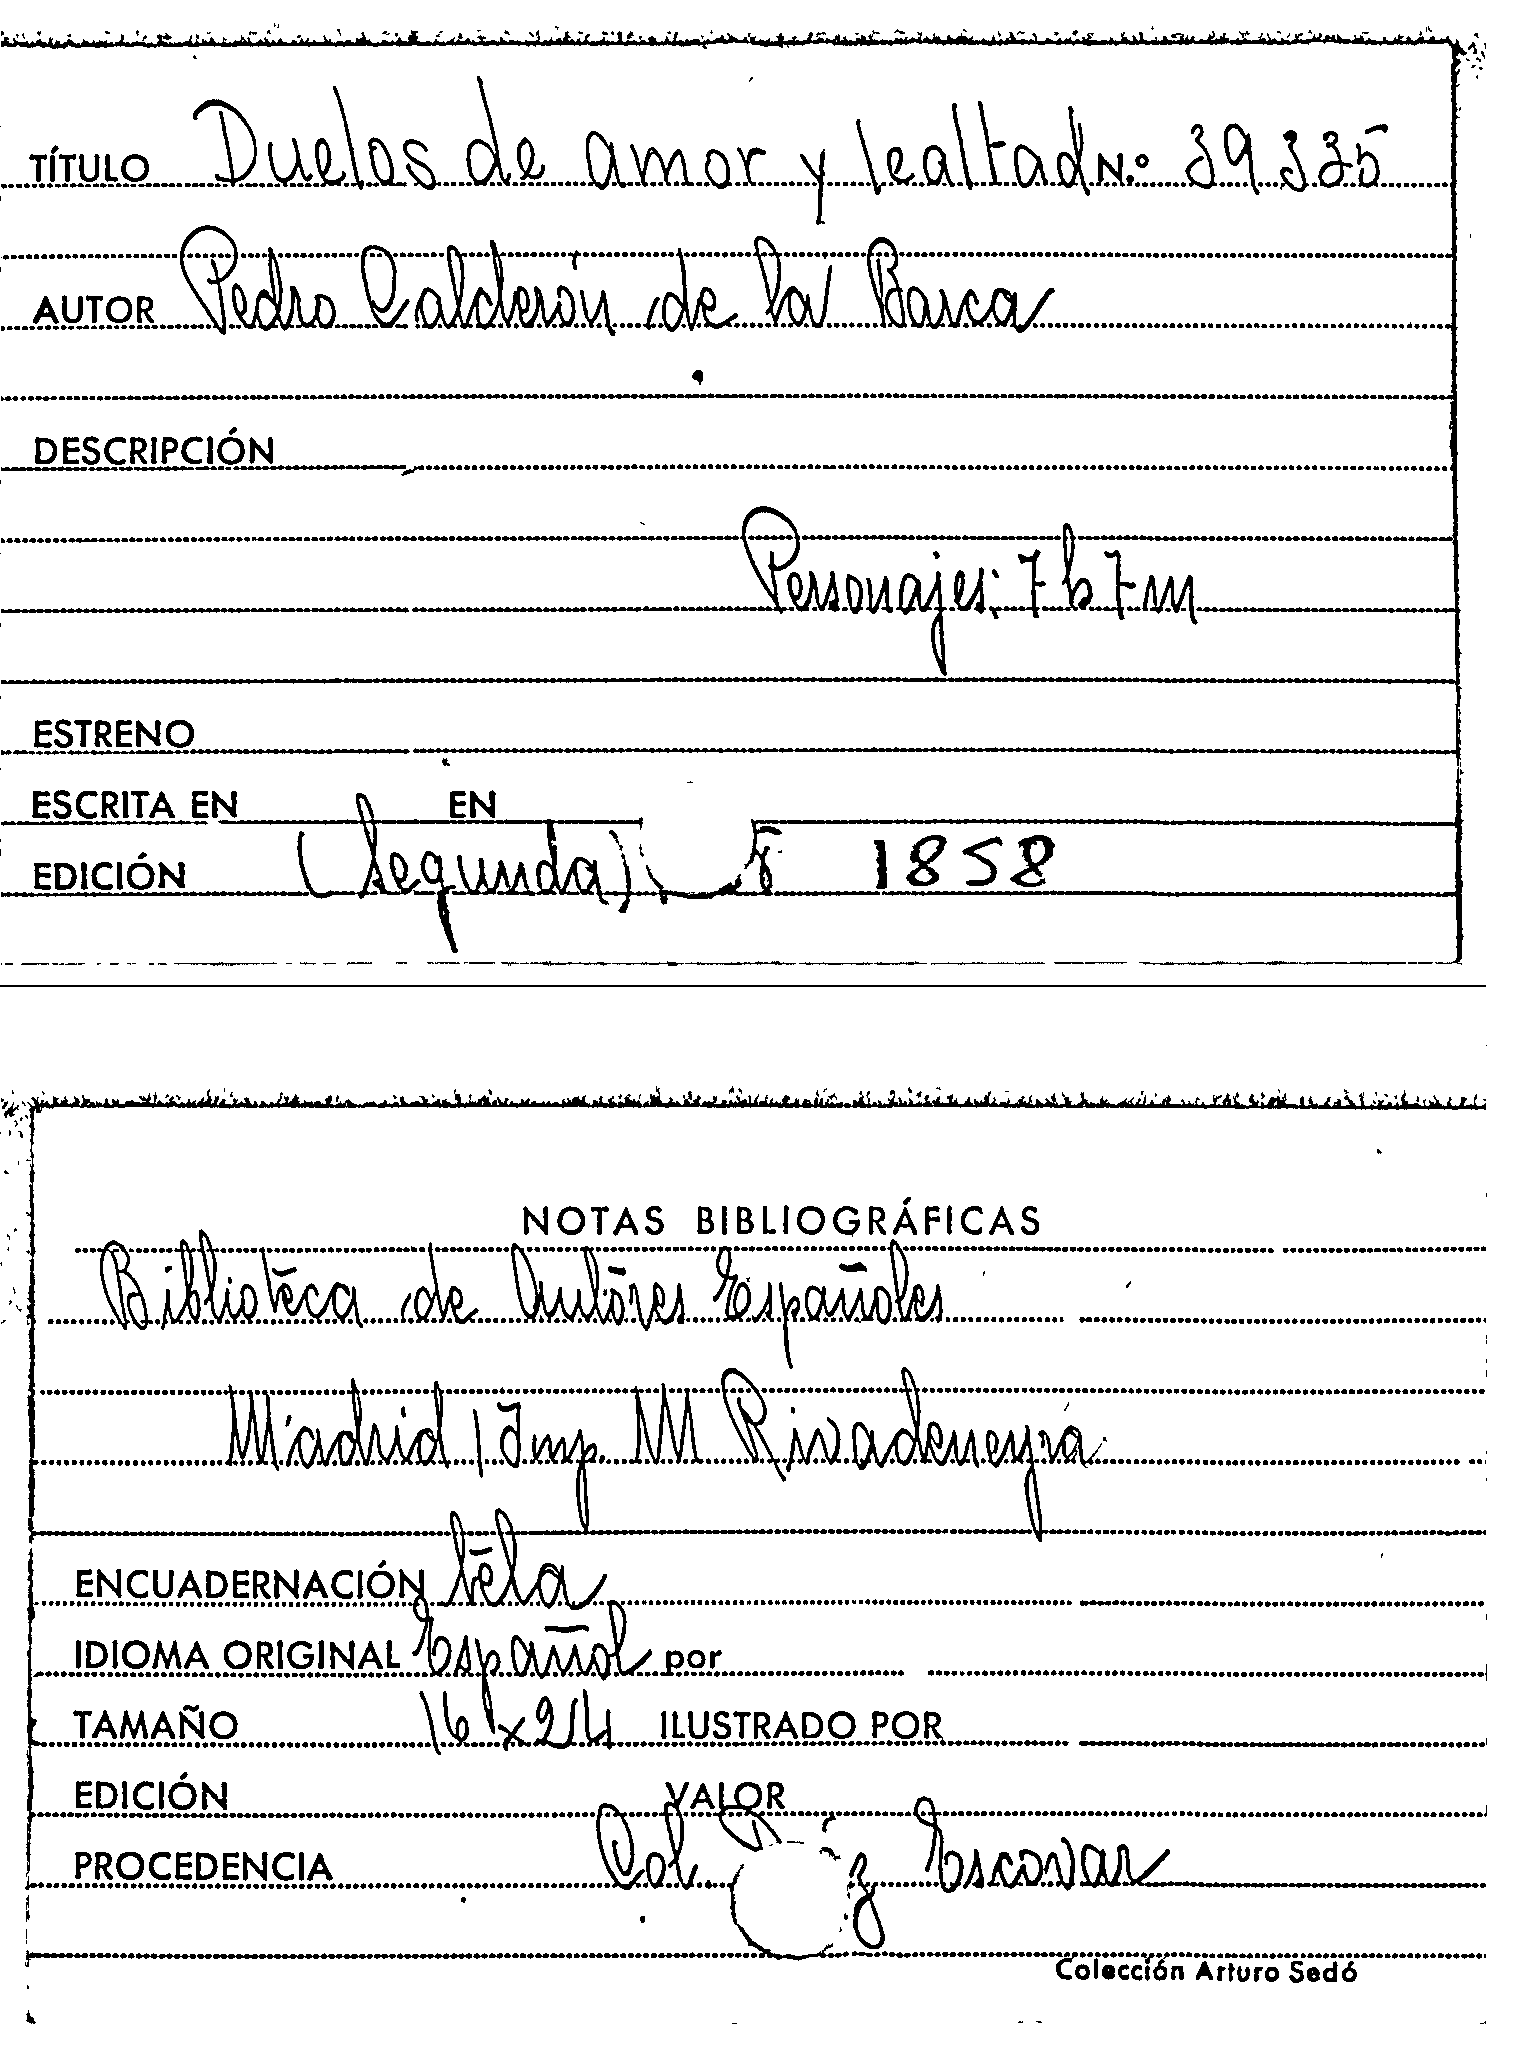 TÍTULO Duelos de amor y lealtad N.º 39335
AUTOR Pedro Calderón de la Barca
DESCRIPCIÓN
Personajes: 7 h 7 m
ESTRENO
ESCRITA EN EN
EDICIÓN (Segunda) 1858
NOTAS BIBLIOGRÁFICAS
Biblioteca de Autores Españoles
Madrid / Imp. M Rivadeneyra
ENCUADERNACIÓN tela
IDIOMA ORIGINAL Español por
TAMAÑO 16 x 24 ILUSTRADO POR
EDICIÓN VALOR
PROCEDENCIA Col. Escovar
Colección Arturo Sedó